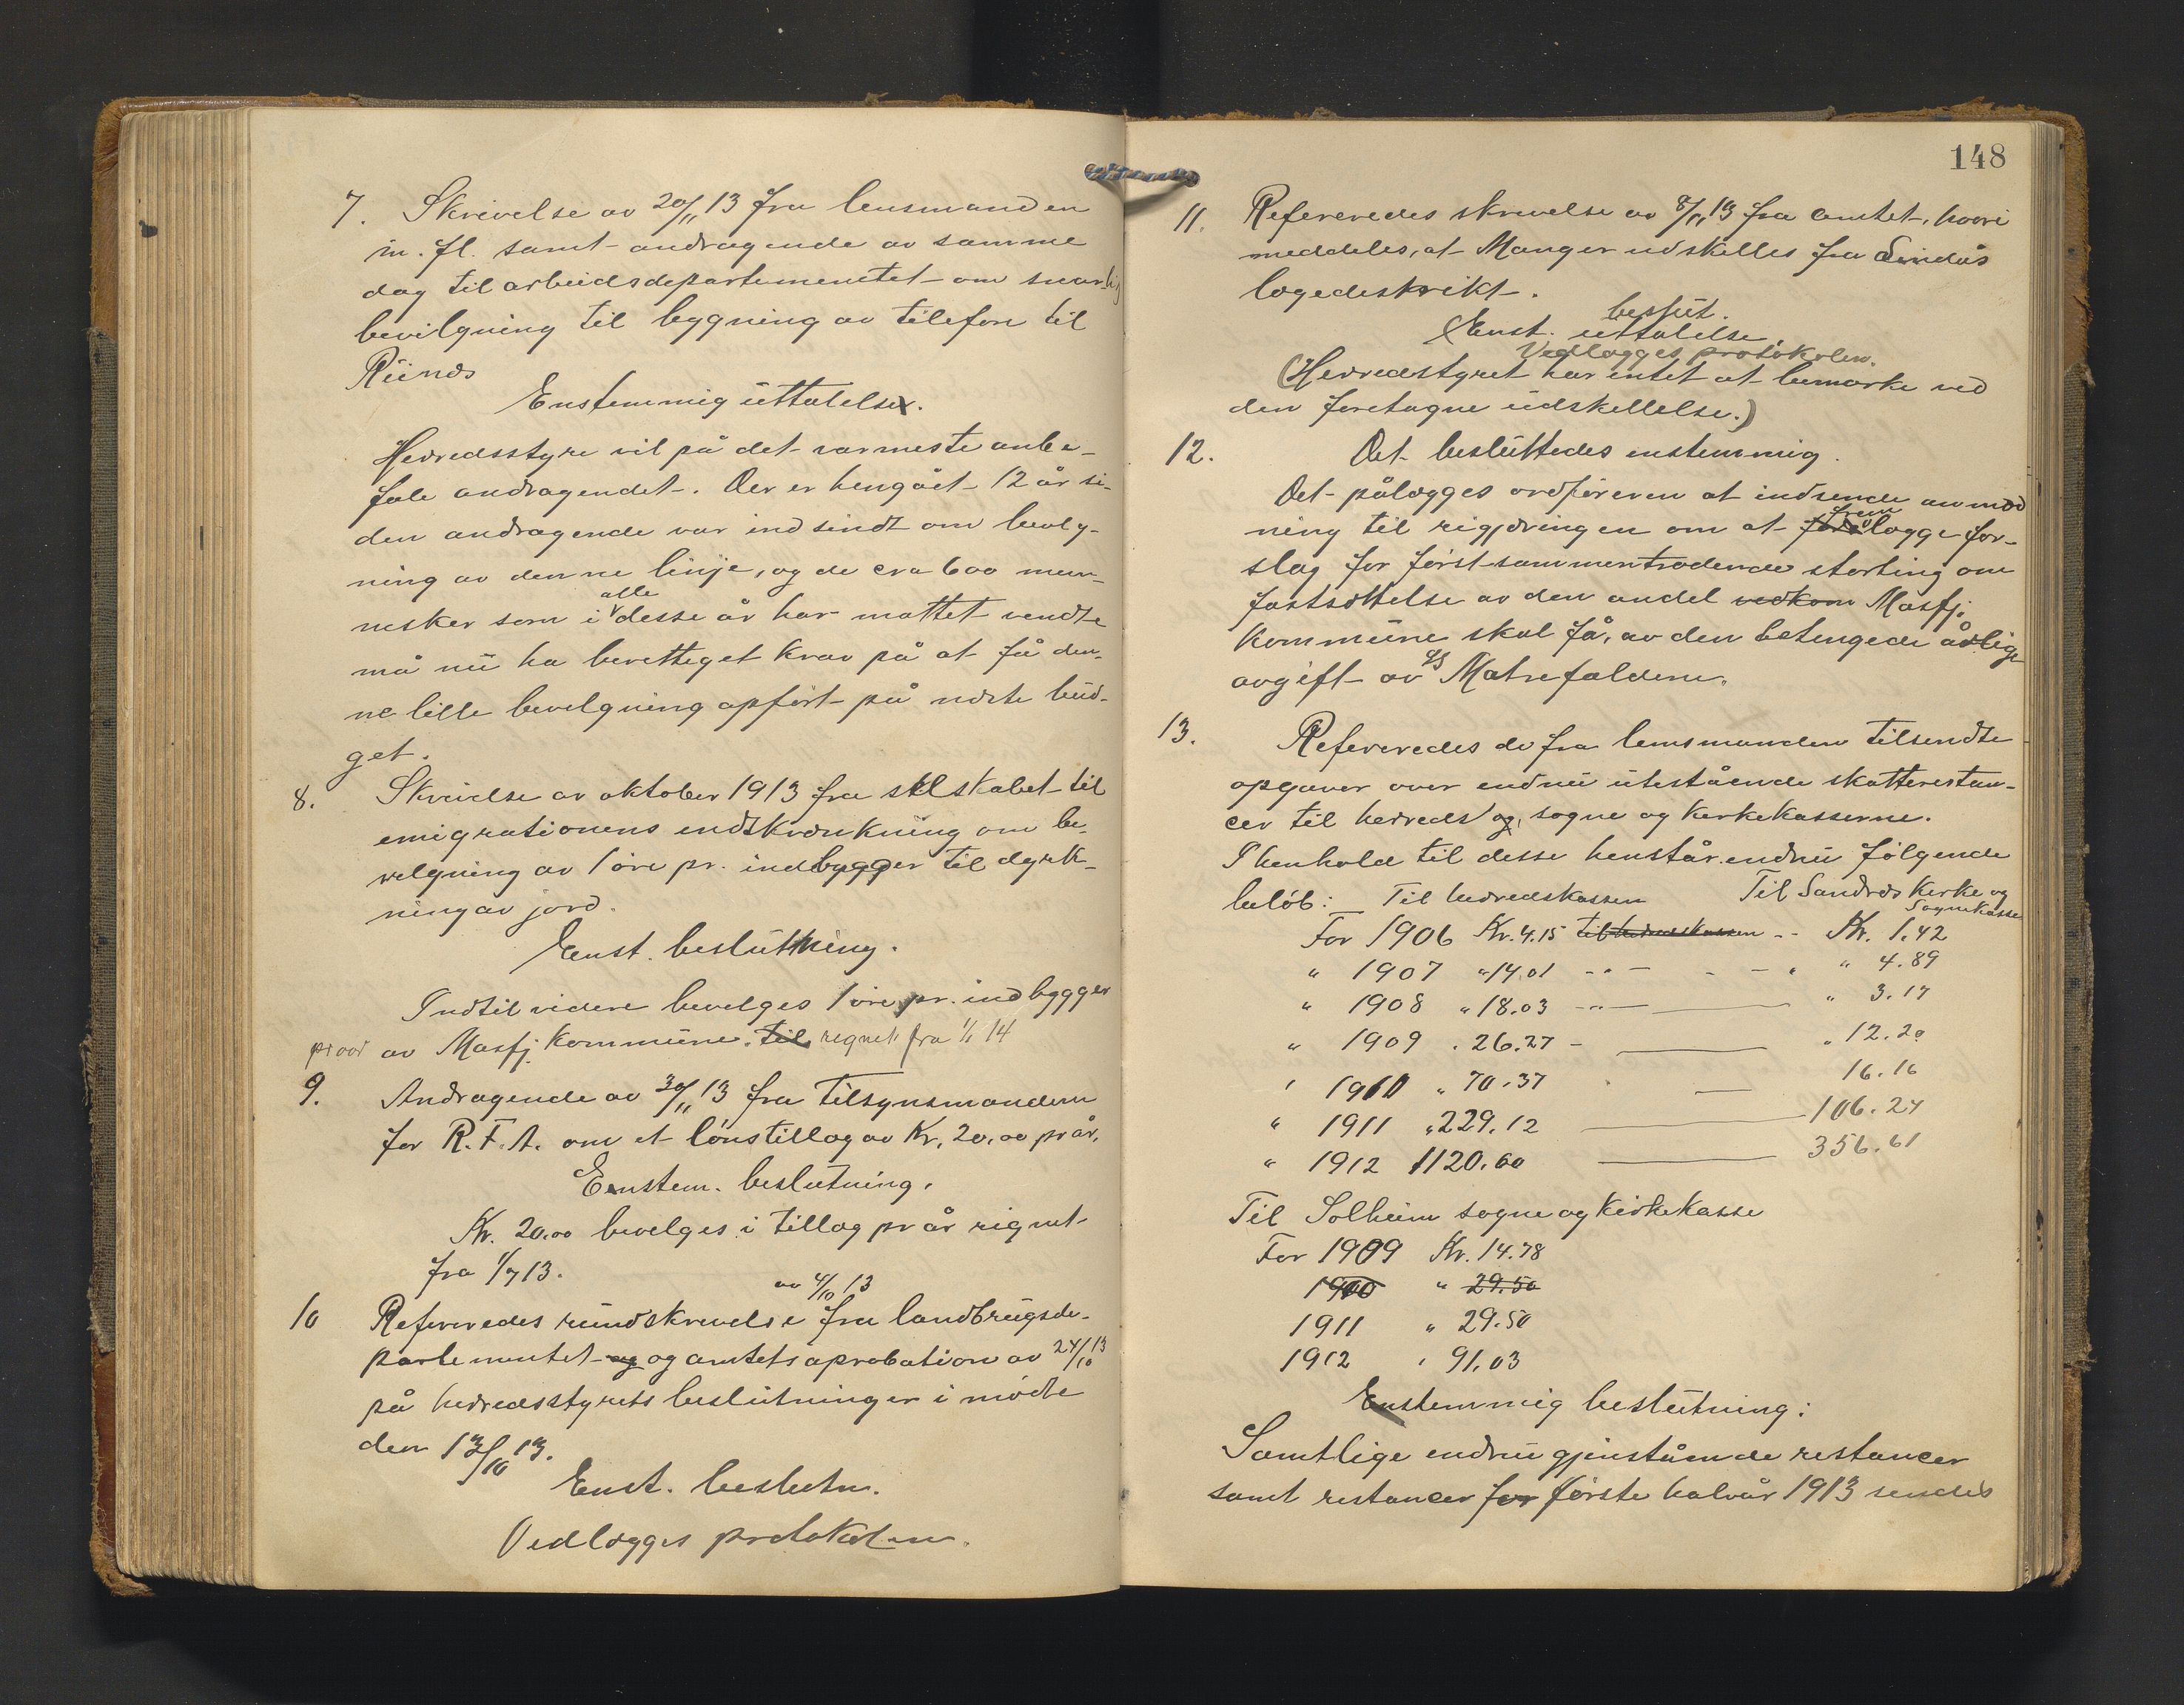 7. Skrivelse av 20/11 13 fra lensmanden
m. fl. samt andragende av samme
dag til arbeidsdepartementet om snarlig
bevilgning til bygning av tilefon til
Riinds
Enstemmig üttalelse.
Herredsstyre vil på det varmeste anbe-
fale andragendet. Der er hengået 12 år si-
den andragende var indsindt om bevlg-
ning av denne linje, og de cra 600 men-
nesker som i alle desse år har måttet vendte
må nü ha berettiget krav på at få den-
ne lille bevelgning opført på nærste büd-
get.
8. Skrivelse av oktober 1913 fra selskabet til
emigrationens indskrænkning om be-
velgning av 1 øre pr. indbygger til dyrk-
ning av jord.
Enst. beslütning.
Indtil videre bevelges 1 øre pr. indbygger
pr aar av Masfj. kommüne. til regnet fra 1/1 14
9. Andragende av 30/11 13 fra tilsynsmanden
for R. F. A. om et lønstillæg av Kr. 20,00 pr år.
Enstem. beslutning.
Kr. 20.00 bevelges i tillæg pr år rignet
fra 1/7 13.
av 4/10 13
10 Refereredes ründskrivelse fra landbrügsde-
partementet og og amtets aprobation av 24/10 13
på herredsstyrets beslütninger i møde
den 13/10 13.
Enst. beslutn.
Vedlægges protokolen.
148
11. Refereredes skrivelse av 8/11 13 fra amtet, hvori
meddeles, at Manger udskilles fra Lindås
lægedistrikt.
beslüt.
(Enst. üttalelse
Vedlægges protokolen.
(Herredstyret har intet at bemærke ved
den foretagne üdskillelse.)
12. Det beslüttedes enstemmig.
Det pålægges ordføreren at indsende anmod
ning til rigjøringen om at fore frem lægge for-
slag for først sammentrædende storting om
fastsættelse av den andel vedkom Masfj.
kommüne skal få, av den betingede årlige
avgift av Matrefaldene.
13. Refereredes de fra lensmanden tilsendte
opgaver over endnü ütestående skatterestan-
cer til herreds og, sogne og kerkekasserne.
I henhold til desse henstår endnü følgende
beløb: Til herredskassen Til Sandnes Kerke og
Sognekasse
For 1906 Kr. 4.15 til herredskassen -- Kr. 1.42
" 1907 " 14.01 -"- - - " 4.89
" 1908 " 18.03 -"- " 3.17
" 1909 " 26.27 - " 12.20
" 1910 " 70.37 16.16
" 1911 " 229.12 106.24
" 1912 1120.60 356.61
Til Solheim sogne og kirkekasse
For 1909 Kr. 14.78
1910 " 29.50
1911 " 29.50
1912 " 91.03
Enstemmig beslütning:
Samtlige endnü gjenstående restancer
samt restancer for første halvår 1913 sendes